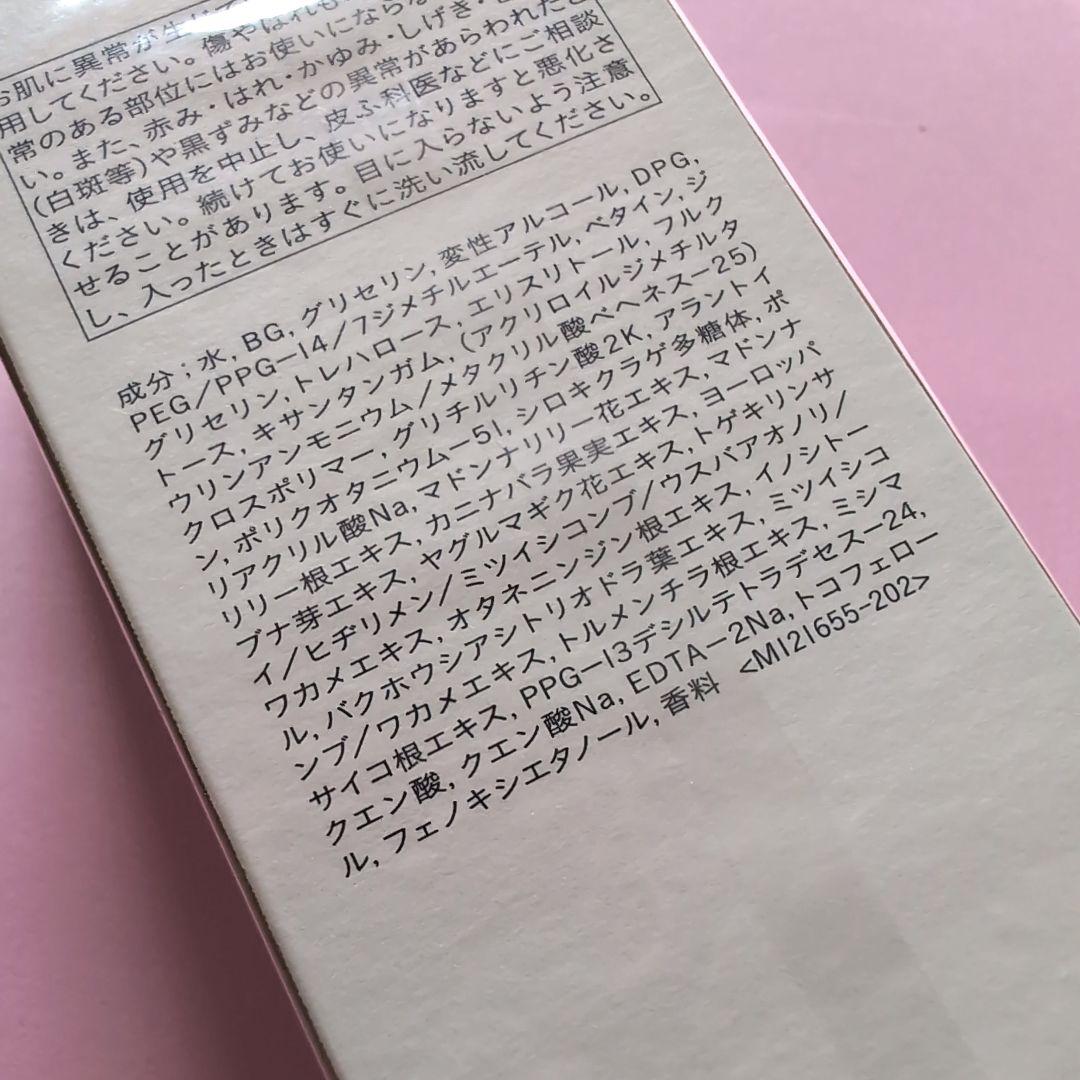 用してください。傷やはれも
常のある部位にはお使いにならな
い。また、赤み・はれ・かゆみ・しげき・
(白斑等)や黒ずみなどの異常があらわれたと
きは、使用を中止し、皮ふ科医などにご相談
ください。続けてお使いになりますと悪化さ
せることがあります。目に入らないよう注意
し、入ったときはすぐに洗い流してください。
成分;水, BG, グリセリン, 変性アルコール, DPG,
PEG/PPG-14/7ジメチルエーテル, ベタイン, ジ
グリセリン, トレハロース, エリスリトール, フルク
トース, キサンタンガム, (アクリロイルジメチルタ
ウリンアンモニウム/メタクリル酸ベヘネス-25)
クロスポリマー, グリチルリチン酸2K, アラントイ
ン, ポリクオタニウム-51, シロキクラゲ多糖体, ポ
リアクリル酸Na, マドンナリリー花エキス, マドンナ
リリー根エキス, カニナバラ果実エキス, ヨーロッパ
ブナ芽エキス, ヤグルマギク花エキス, トゲキリンサ
イ/ヒヂリメン/ミツイシコンブ/ウスバアオノリ/
ワカメエキス, オタネニンジン根エキス, イノシトー
ル, バクホウシアシトリオドラ葉エキス, ミツイシコ
ンブ/ワカメエキス, トルメンチラ根エキス, ミシマ
サイコ根エキス, PPG-13デシルテトラデセス-24,
クエン酸, クエン酸Na, EDTA-2Na, トコフェロー
ル, フェノキシエタノール, 香料 <M121655-202>